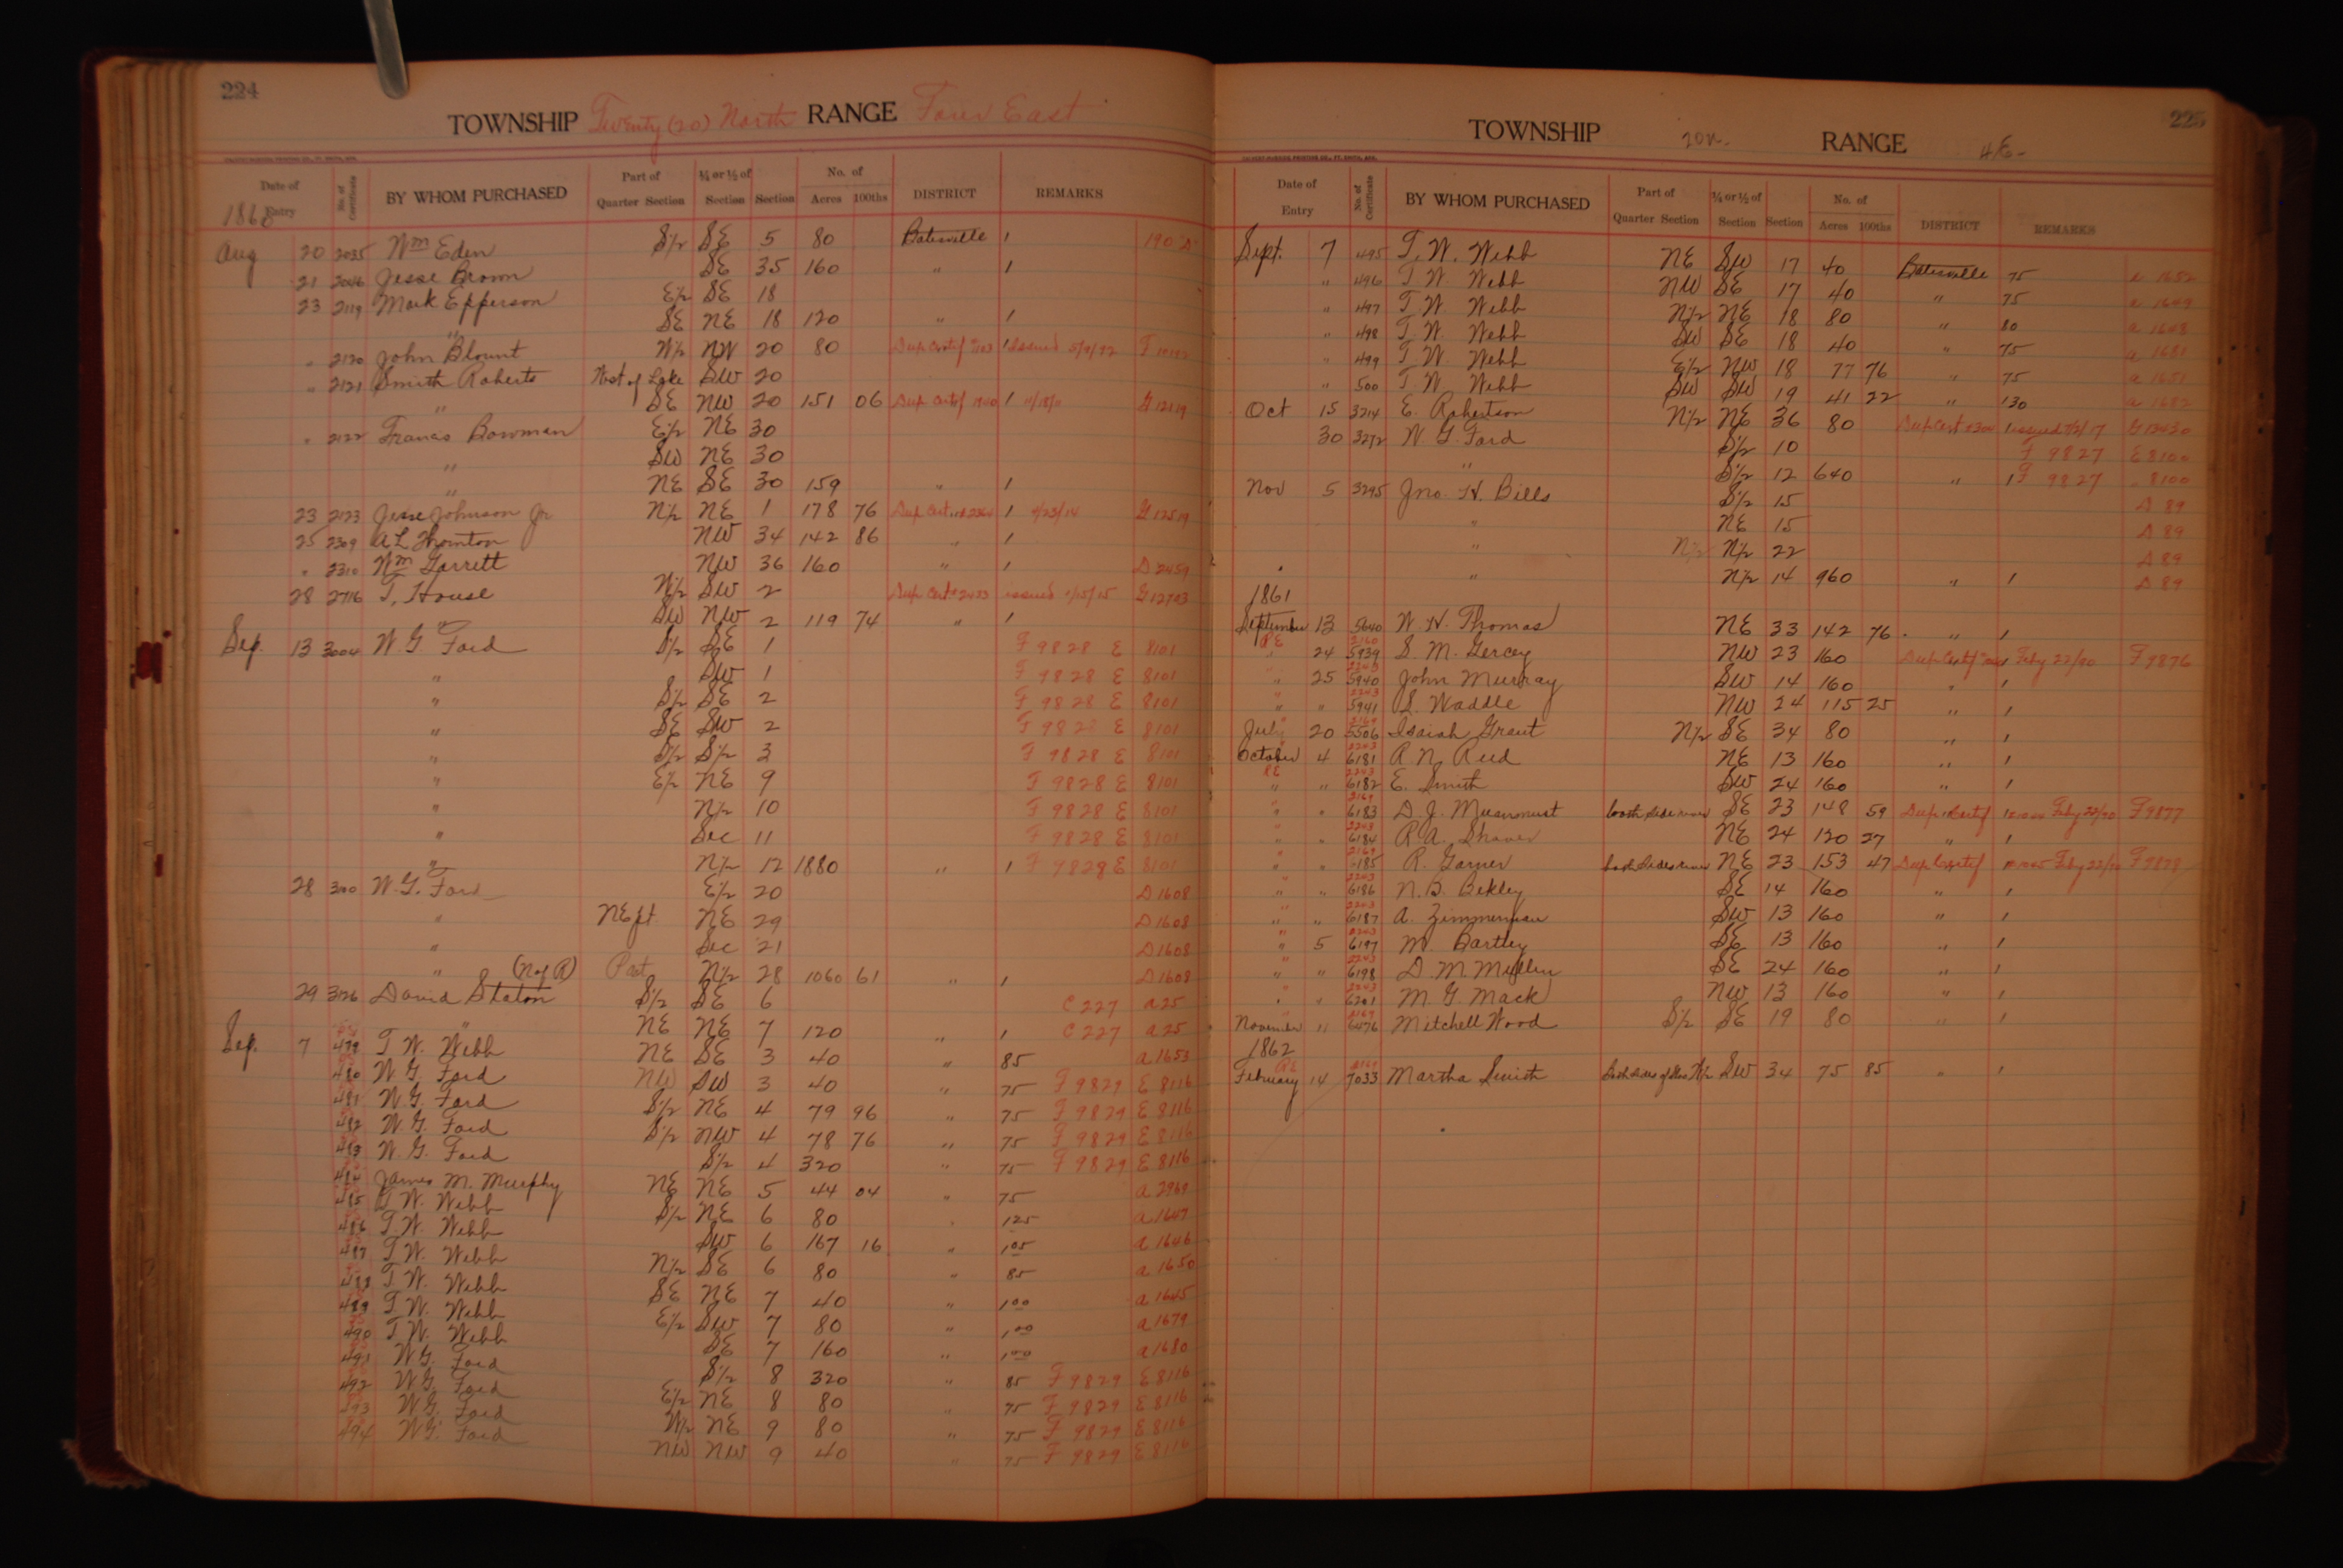 224
TOWNSHIP Twenty (20) North RANGE Four East
Date of Entry No. of Certificate BY WHOM PURCHASED Part of Quarter Section ¼ or ½ of Section Section No. of Acres 100ths DISTRICT REMARKS
Aug 20 2035 Wm Eden S½ SE 5 80 Batesville 1
21 2046 Jesse Brown SE 35 160 " 1
23 2119 Mark Epperson E½ SE 18
" SE NE 18 120 " 1
" 2120 John Blount W½ NW 20 80 Issued 5/9/92
" 2121 Smith Roberts West of Lake SW 20
" SE NW 20 151 06 1
" 2122 Francis Bowman E½ NE 30
" SW NE 30
" NE SE 30 159 " 1
23 2123 Jesse Johnson Jr N½ NE 1 178 76 1 G 12519
25 2309 A L Thornton NW 34 142 86 " 1
" 2310 Wm Garrett NW 36 160 " 1 D 2459
28 2716 T. House N½ SW 2 Dup Cert 2433 issued G 12703
" SW NW 2 119 74 " 1
Sep. 13 3004 W G Ford S½ SE 1 F 9828 E 8101
" SW 1 F 9828 E 8101
" S½ SE 2 F 9828 E 8101
" SE SW 2 F 9828 E 8101
" S½ S½ 3 F 9828 E 8101
" E½ NE 9 F 9828 E 8101
" N½ 10 F 9828 E 8101
" Sec 11 F 9828 E 8101
" N½ 12 1880 " 1 F 9828 E 8101
28 W. G. Ford E½ 20 D 1608
" NE pt NE 29 D 1608
" Sec 21 D 1608
" (N of R) Part N½ 28 1060 61 " 1 D 1608
29 3126 David Staton S½ SE 6 C 227 a 25
" NE NE 7 120 " 1 C 227 a 25
Sep. 7 479 T W. Webb NE SE 3 40 " 85 a 1653
480 W G Ford NW SW 3 40 " 75 F 9829 E 8116
481 W G Ford S½ NE 4 79 96 " 75 F 9829 E 8116
482 W. G. Ford S½ NW 4 78 76 " 75 F 9829 E 8116
483 W. G. Ford S½ 4 320 " 75 F 9829 E 8116
484 James M. Murphy NE NE 5 44 04 " 75 a 2969
485 T W. Webb S½ NE 6 80 " 125 a 1647
486 T W. Webb SW 6 167 16 " 105 a 1646
487 T W. Webb N½ SE 6 80 " 85 a 1650
488 T W. Webb SE NE 7 40 " 100 a 1645
489 T W. Webb E½ SW 7 80 " 100 a 1679
490 T W. Webb SE 7 160 " 100 a 1680
491 W G. Ford S½ 8 320 " 85 F 9829 E 8116
492 W G. Ford E½ NE 8 80 " 75 F 9829 E 8116
493 W G. Ford W½ NE 9 80 " 75 F 9829 E 8116
494 W G. Ford NW NW 9 40 " 75 F 9829 E 8116
225
TOWNSHIP 20 N. RANGE 4 E-
Date of Entry No. of Certificate BY WHOM PURCHASED Part of Quarter Section ¼ or ½ of Section Section No. of Acres 100ths DISTRICT REMARKS
Sept. 7 495 T. W. Webb NE SW 17 40 Batesville 75 a 1652
" 496 T W Webb NW SE 17 40 " 75 a 1649
" 497 T W. Webb N½ NE 18 80 " 80 a 1648
" 498 T W. Webb SW SE 18 40 " 75 a 1681
" 499 T W Webb E½ NW 18 77 76 " 75 a 1651
" 500 T W. Webb SW SW 19 41 22 " 130 a 1682
Oct 15 3214 E. Robertson N½ NE 36 80 Dup Cert issued
30 3272 W G. Ford S½ 10 F 9827 E 8100
" S½ 12 640 " 1 F 9827 " 8100
Nov 5 3295 Jno. H. Bills S½ 15 D 89
" NE 15 D 89
" N½ N½ 22 D 89
" N½ 14 960 " 1 D 89
1861
September 13 5640 W. H. Thomas NE 33 142 76 " 1
24 5939 S. M. Gercey NW 23 160 Feby 22/90 F 9876
" 25 5940 John Murray SW 14 160 " 1
" " 5941 S. Waddle NW 24 115 25 " 1
July 20 5506 Isaiah Grant N½ SE 34 80 " 1
October 4 6181 A N. Reed NE 13 160 " 1
" " 6182 E. Smith SW 24 160 " 1
" " 6183 both side river SE 23 148 59 Dup Certif Feby 22/90 F 9877
" " 6184 R A. Shaver NE 24 120 27 " 1
" " 6185 R. Garner both sides river NE 23 153 47 Dup Certif Feby 22/90 F 9878
" " 6186 N. B. Bekley SE 14 160 " 1
" " 6187 A. Zimmerman SW 13 160 " 1
" 5 6197 M. Bartley SE 13 160 " 1
" " 6198 D. M Mullin SE 24 160 " 1
" " 6201 M. G. Mack NW 13 160 " 1
November 11 6476 Mitchell Wood S½ SE 19 80 " 1
1862
February 14 7033 Martha Smith SW 34 75 85 " 1